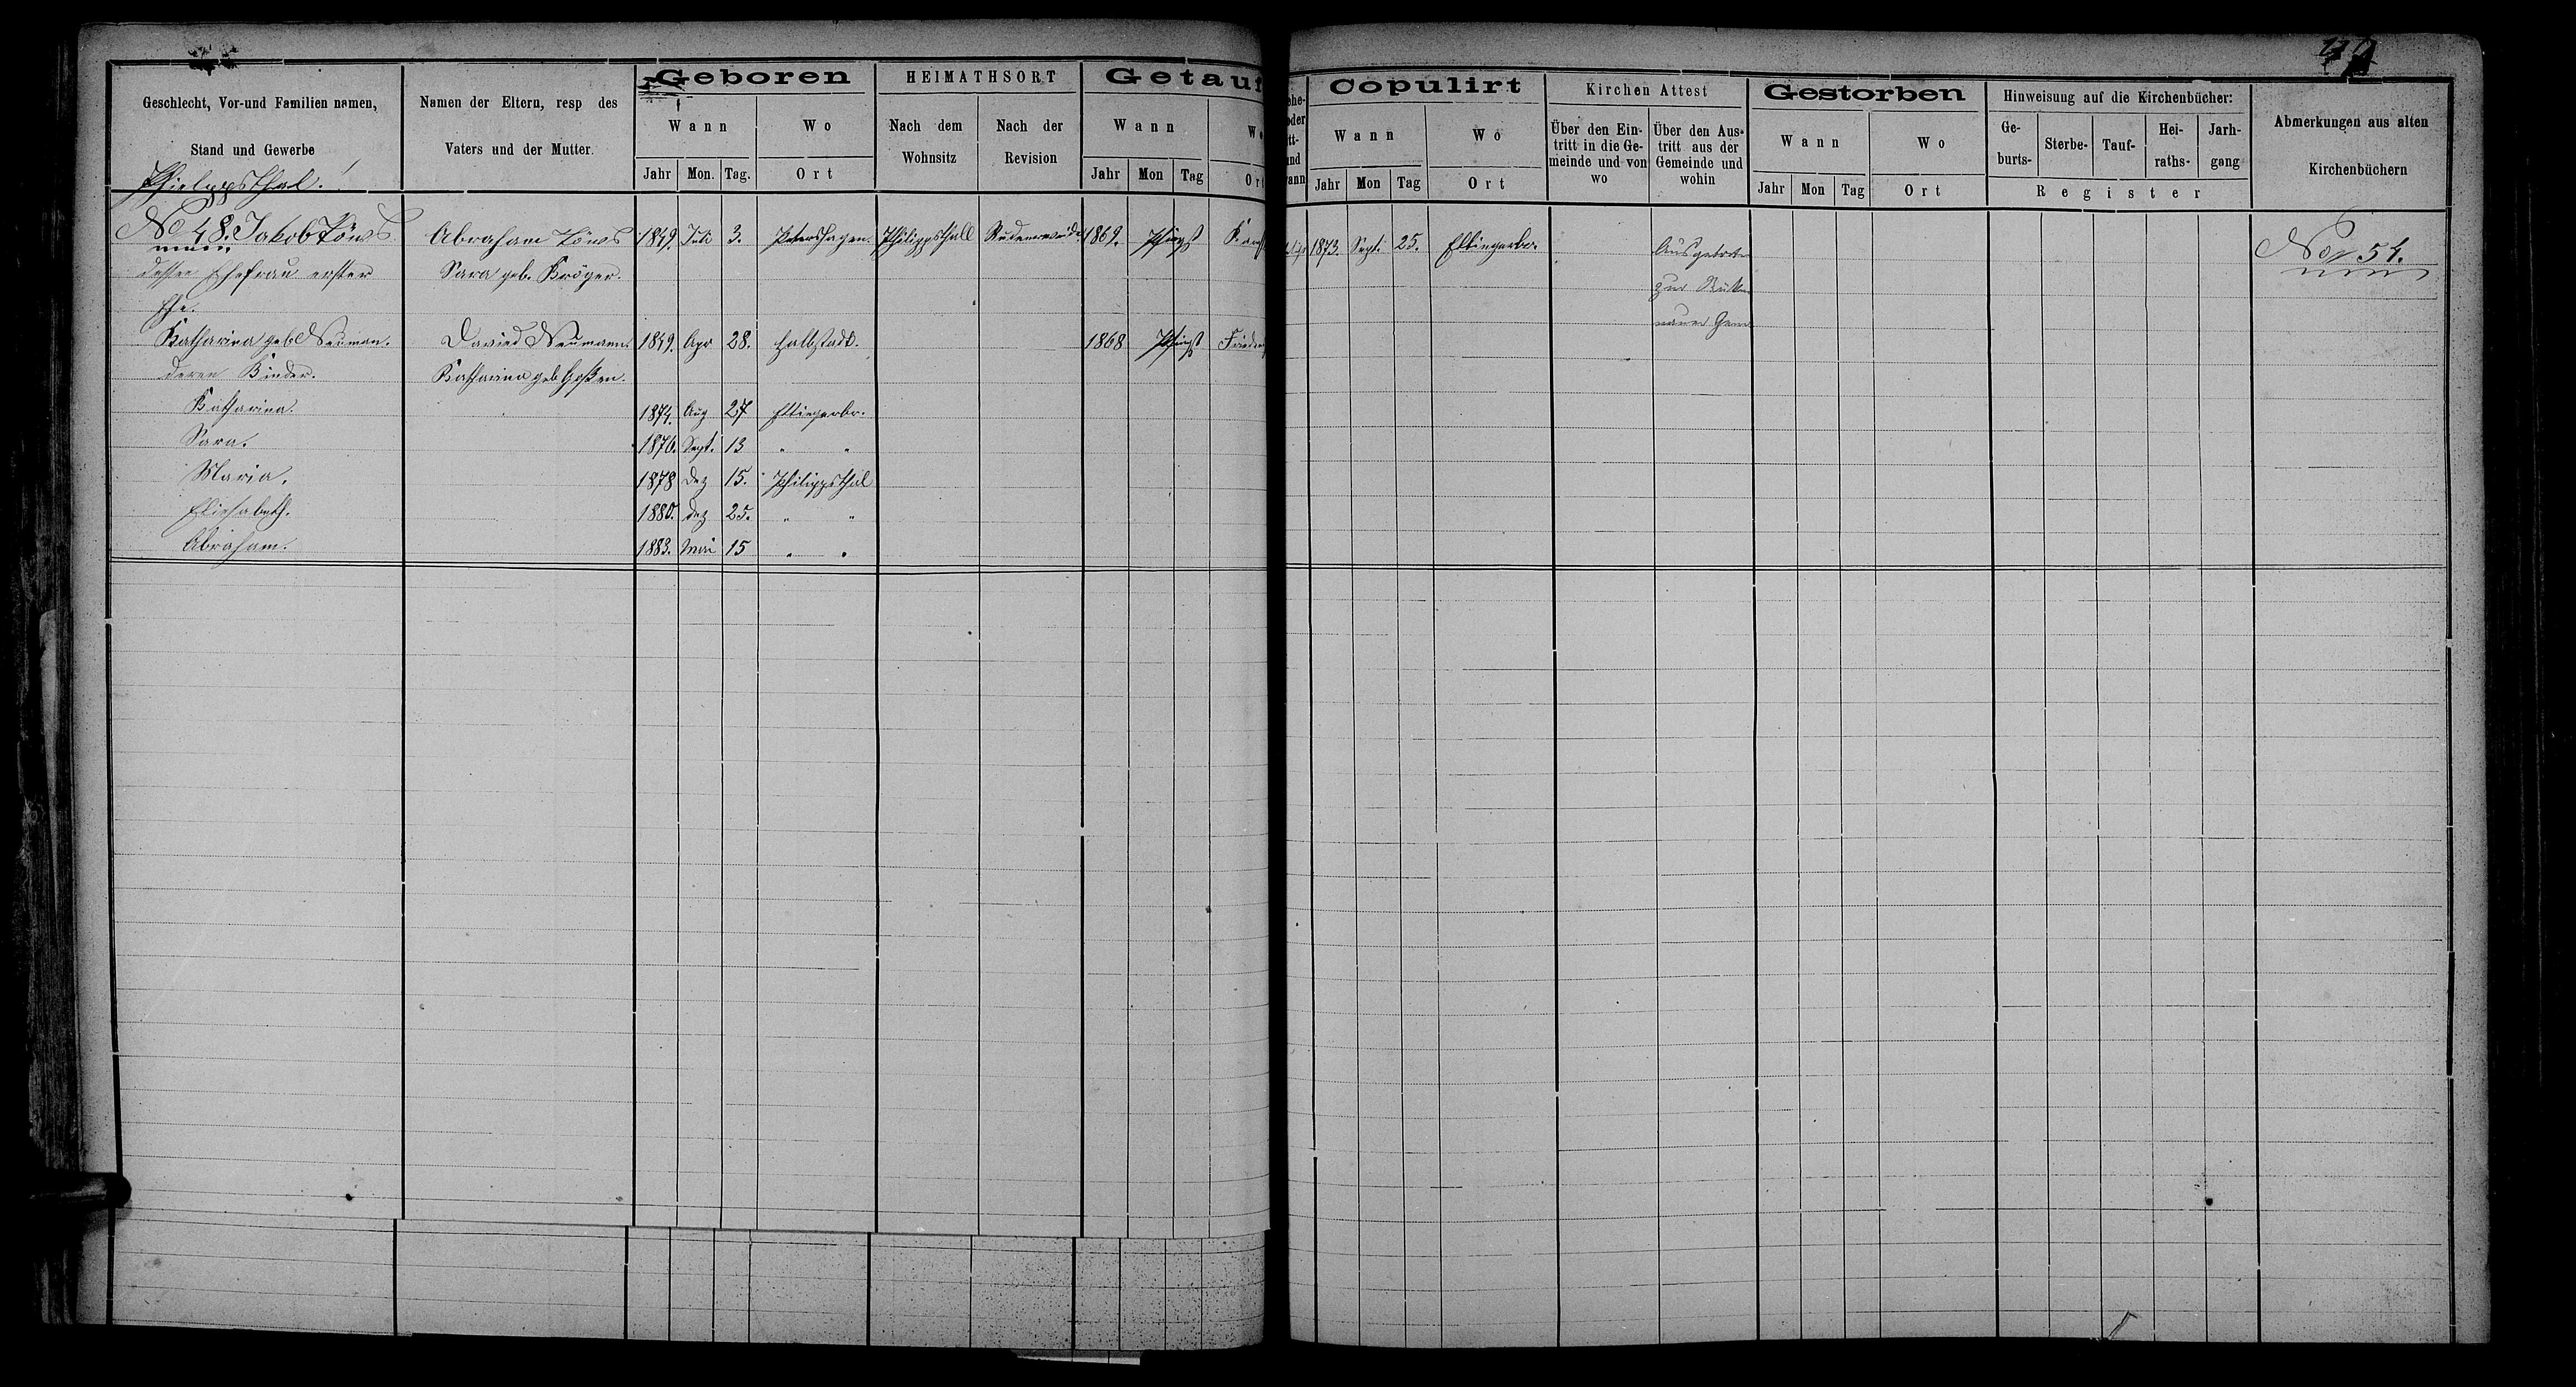 Geschlecht, Vor-und Familien namen,
Stand und Gewerbe
Namen der Eltern, resp des
Vaters und der Mutter.
Geboren
Wann
Jahr Mon. Tag.
Wo
Ort
HEIMATHSORT
Nach dem
Wohnsitz
Nach der
Revision
Getauf
Wann
Jahr Mon Tag
Copulirt
Wann
Jahr Mon Tag
Wo
Ort
Kirchen Attest
Über den Ein-
tritt in die Ge-
meinde und von
wo
Über den Aus-
tritt aus der
Gemeinde und
wohin
Gestorben
Wann
Jahr Mon Tag
Wo
Ort
Hinweisung auf die Kirchenbücher:
Ge-
burts-
Sterbe-
Tauf-
Hei-
raths-
Jarh-
gang
Register
Abmerkungen aus alten
Kirchenbüchern
Phielppsthal.
No 48. Jakob Töws Abraham Töws 1849. Juli 3. Petershagen. Philippsthall Rudnerweide 1869. Pfingst 1873. Sept. 25. Ellingerbr. Ausgetrete No 54.
dessen Ehefrau erster Sara geb. Kröger. zur
Ehe. Geme
Katharina geb Neuman. David Neumann. 1849. Apr 28. Halbstadt. 1868 Pfingst Friedens
deren Kinder. Katharina geb Goßen.
Katharina. 1874. Aug 27 Ellingerbr.
Sara. 1876. Sept. 13 " "
Maria. 1878 Dez 15. Philippsthal
Eliesabeth. 1880. Dez 25. " "
Abraham. 1883. Mai 15 " "